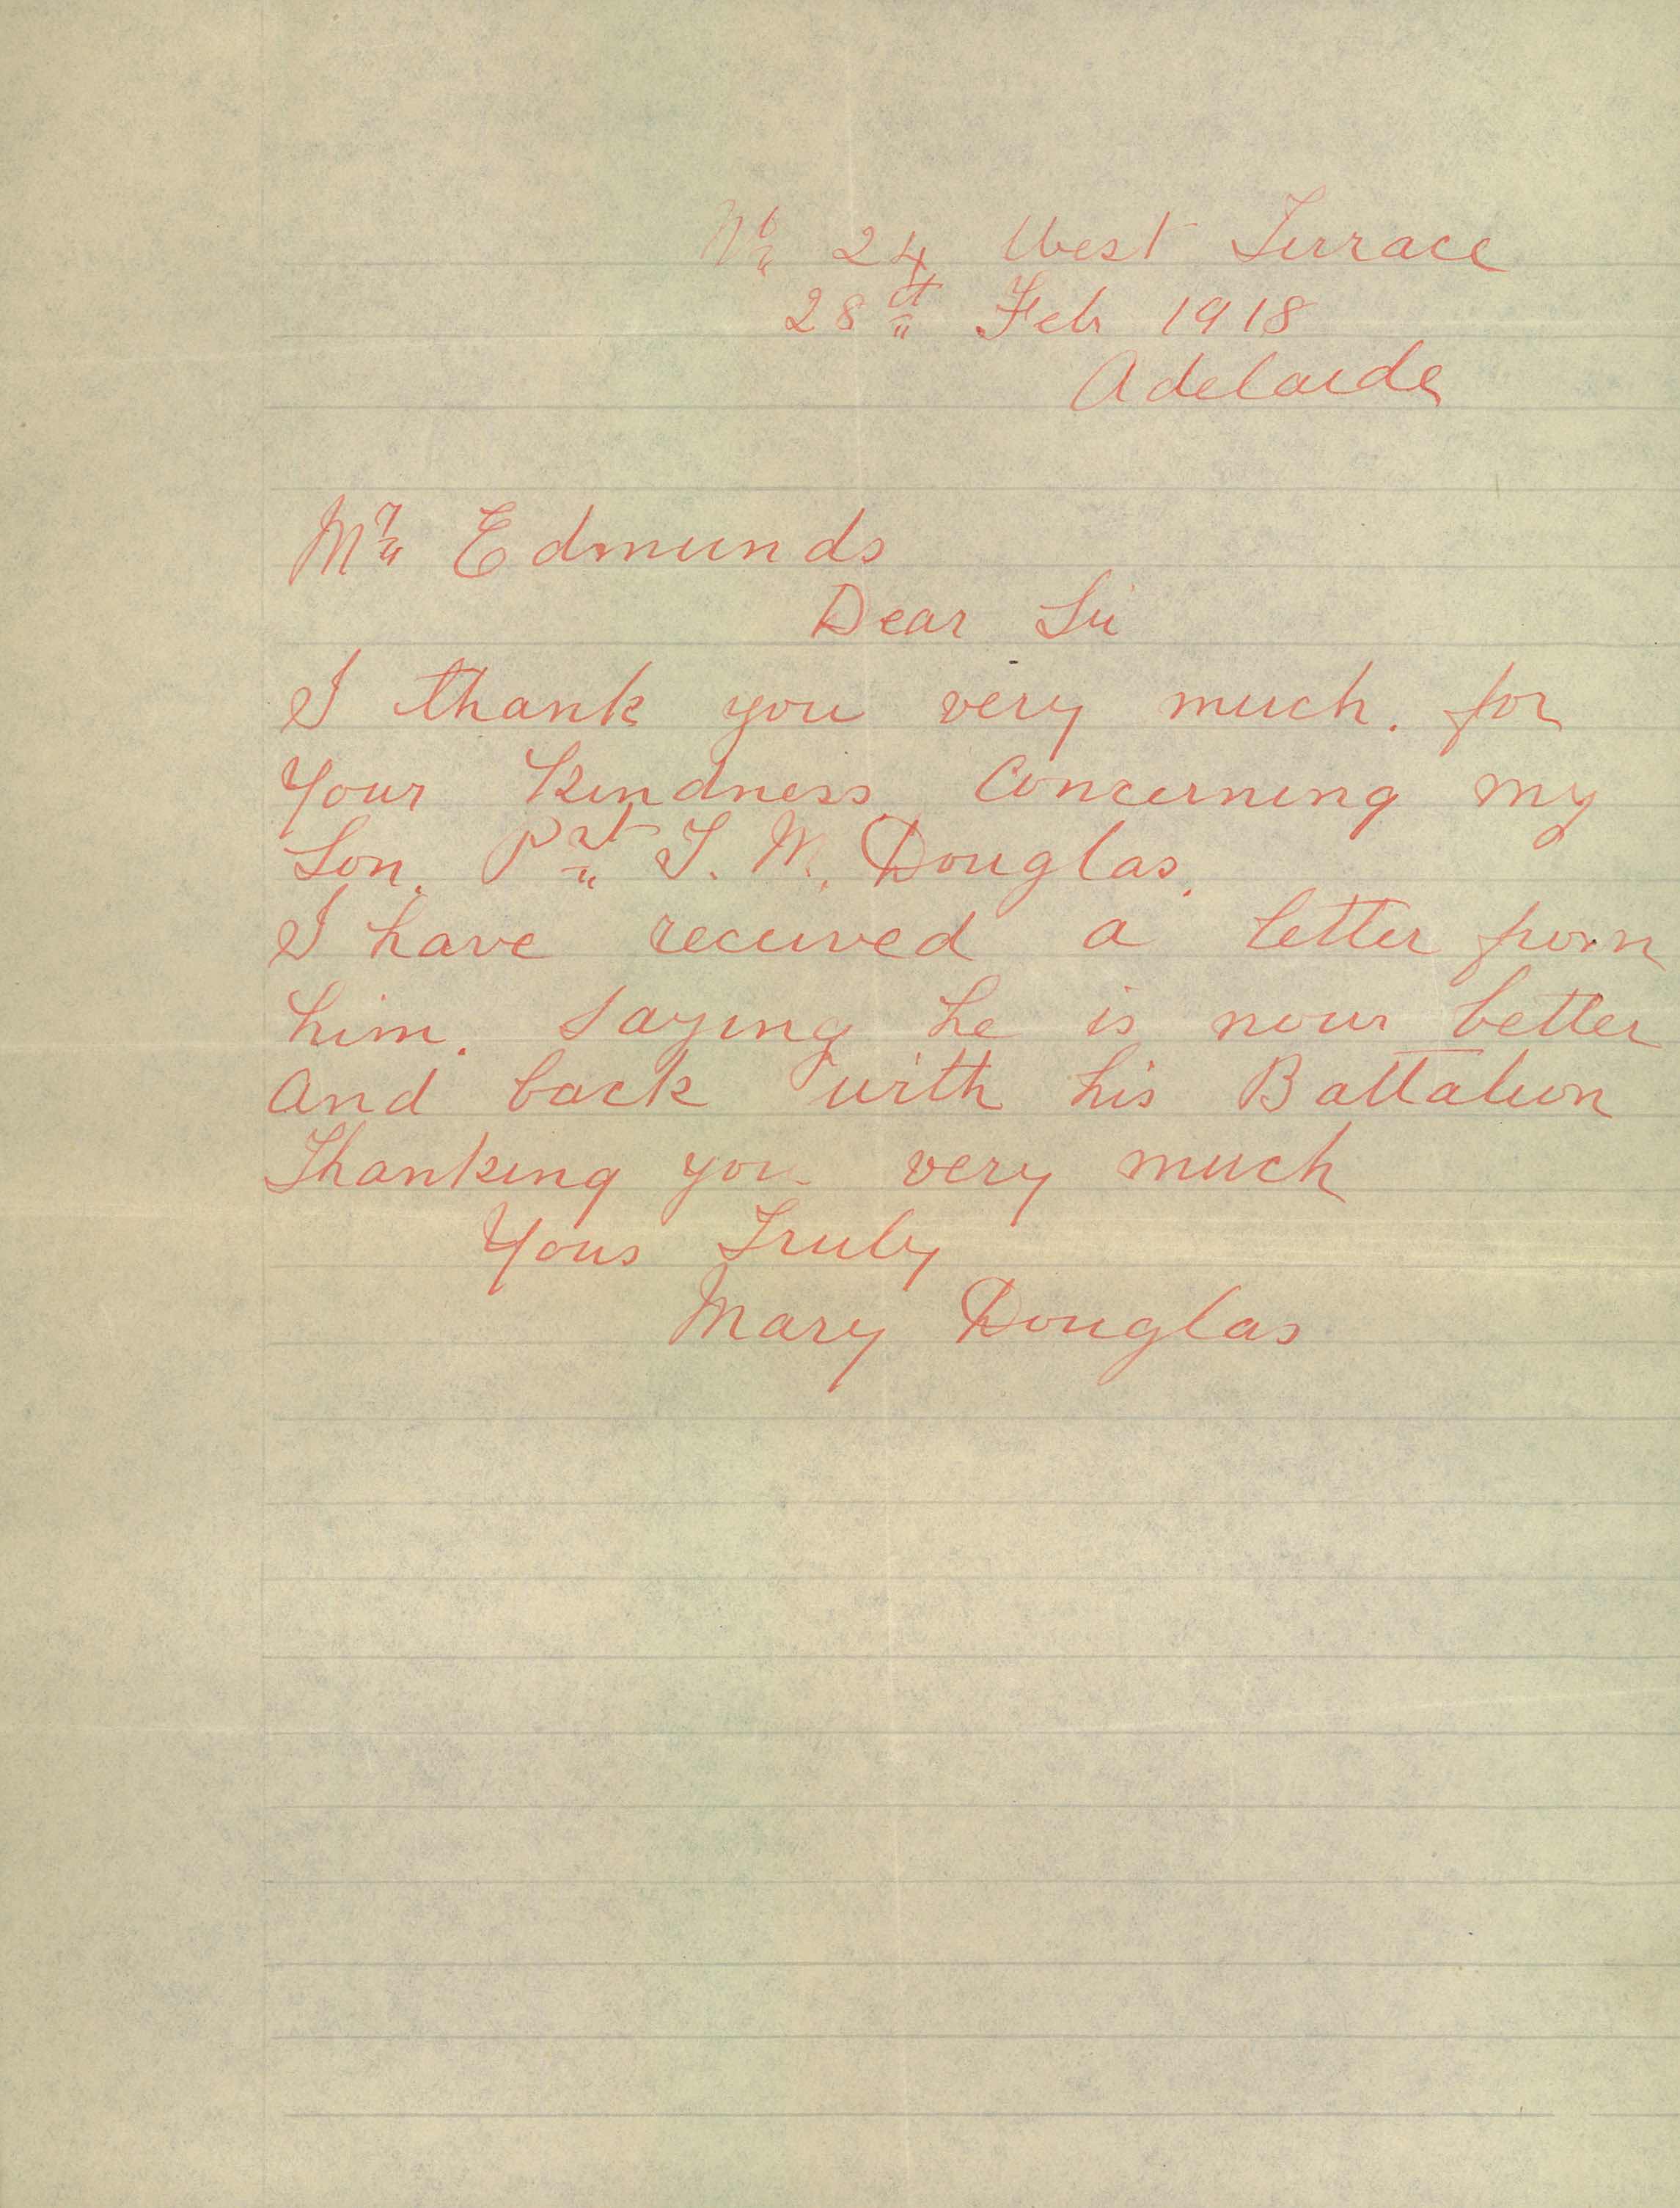 No 24 West Terrace
28th Feb 1918
Adelaide
Mr Edmunds
Dear Sir
I thank you very much. for
Your Kindness Concerning my
Son. Prt T. W. Douglas.
I have received a letter from
him. saying he is now better
and back with his Battalion
Thanking you very much
Yous Truly
Mary Douglas